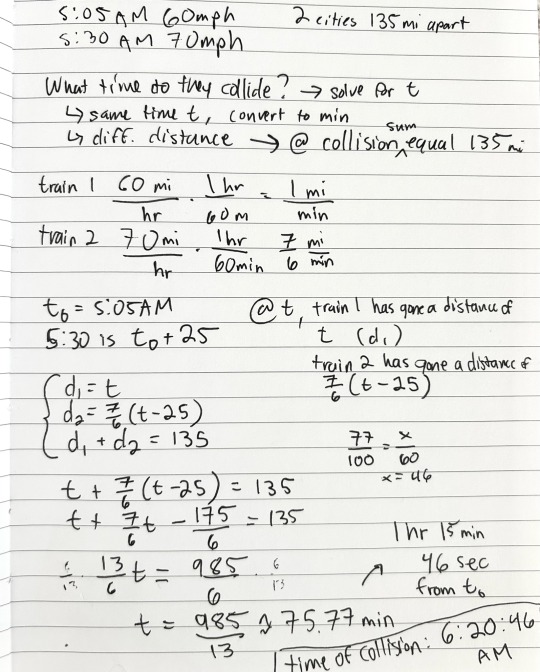 5:05 AM 60mph 2 cities 135 mi apart
5:30 AM 70mph
What time do they collide? → solve for t
↳ same time t, convert to min
↳ diff. distance → @ collision sum equal 135 mi
train 1 60 mi/hr · 1 hr/60 m = 1 mi/min
train 2 70 mi/hr · 1hr/60min 7/6 mi/min
t₀ = 5:05AM
5:30 is t₀ + 25
@ t, train 1 has gone a distance of
t (d₁)
train 2 has gone a distance of
7/6 (t - 25)
{ d₁ = t
d₂ = 7/6 (t - 25)
d₁ + d₂ = 135
77/100 = x/60
x = 46
t + 7/6 (t - 25) = 135
t + 7/6 t - 175/6 = 135
6/13 · 13/6 t = 985/6 · 6/13
t = 985/13 ≈ 75.77 min
1 hr 15 min
↗ 46 sec
from t₀
time of collision: 6:20:46
AM